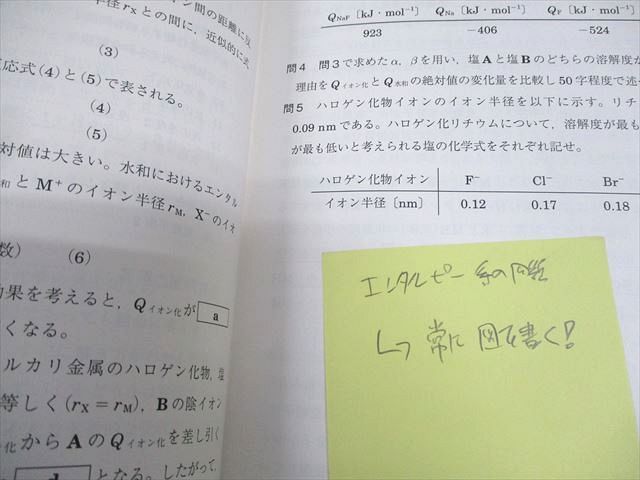 ン間の距離に反
半径rXとの間に，近似的に式
(3)
応式(4)と(5)で表される。
(4)
(5)
対値は大きい。水和におけるエンタル
和とM⁺のイオン半径rM，X⁻のイオ
数） (6)
効果を考えると，Qイオン化が a
くなる。
ルカリ金属のハロゲン化物，塩
等しく(rX＝rM)，Bの陰イオン
化からAのQイオン化を差し引く
d となる。したがって，
QNaF〔kJ・mol⁻¹〕 QNa〔kJ・mol⁻¹〕 QF〔kJ・mol⁻¹〕
923 −406 −524
問4 問3で求めたα，βを用い，塩Aと塩Bのどちらの溶解度が
理由をQイオン化とQ水和の絶対値の変化量を比較し50字程度で述べ
問5 ハロゲン化物イオンのイオン半径を以下に示す。リチ
0.09 nmである。ハロゲン化リチウムについて，溶解度が最も
が最も低いと考えられる塩の化学式をそれぞれ記せ。
ハロゲン化物イオン F⁻ Cl⁻ Br⁻
イオン半径〔nm〕 0.12 0.17 0.18
エンタルピー系の
↳ 常に 図を書く!